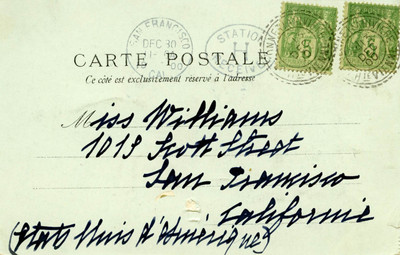 SAN FRANCISCO
DEC 30
CAL.
STATION
CARTE POSTALE
Ce côté est exclusivement réservé à l'adresse
Miss Williams
1019 Scott Street
San Francisco
Californie
(Etats Unis d'Amérique)